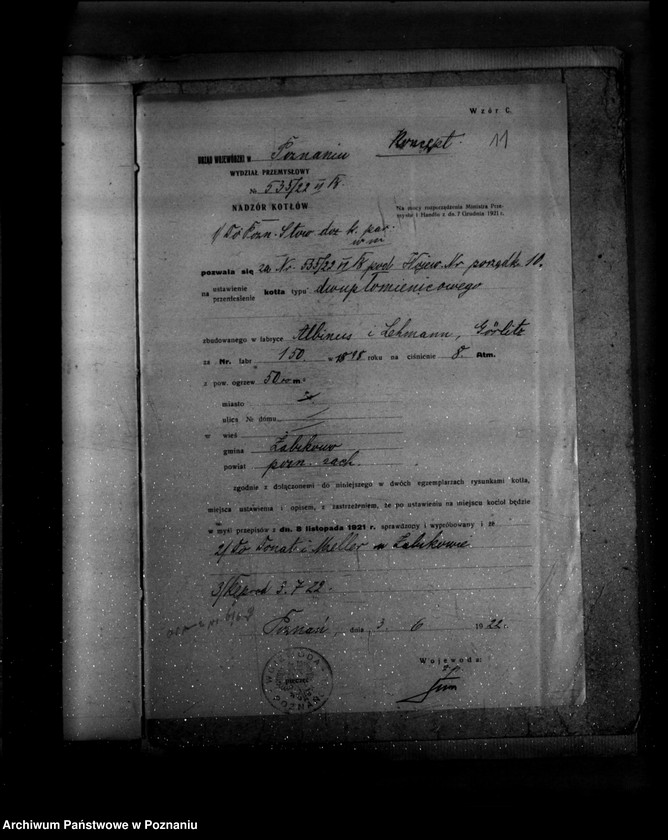 Wzór C.
Koncept. 11
URZĄD WOJEWÓDZKI w Poznaniu
WYDZIAŁ PRZEMYSŁOWY
№ 535/22 II
NADZÓR KOTŁÓW
Na mocy rozporządzenia Ministra Prze-
mysłu i Handlu z dn. 7 Grudnia 1921 r.
1/ Do Pozn. Stow. doz. k. par.
w m
pozwala się za Nr. 535/22 II pod Nr porządk 10.
na ustawienie
przeniesienie kotła typu dwupłomienicowego
zbudowanego w fabryce Albinus i Lehmann, Görlitz
za Nr. fabr 150 w roku na ciśnienie 8 Atm.
z pow. ogrzew 50
miasto
ulica № domu
w wieś
gmina Żabikowo
powiat pozn. zach.
zgodnie z dołączonemi do niniejszego w dwóch egzemplarzach rysunkami kotła,
miejsca ustawienia i opisem, z zastrzeżeniem, że po ustawieniu na miejscu kocioł będzie
w myśl przepisów z dn. 8 listopada 1921 r. sprawdzony i wypróbowany i że
2/ Do Donat i Moeller w Żabikowie.
3/ 3.7 22.
Poznań, dnia 3 6 1922 r.
Wojewoda:
WOJEWODA
POZNAŃ
Archiwum Państwowe w Poznaniu